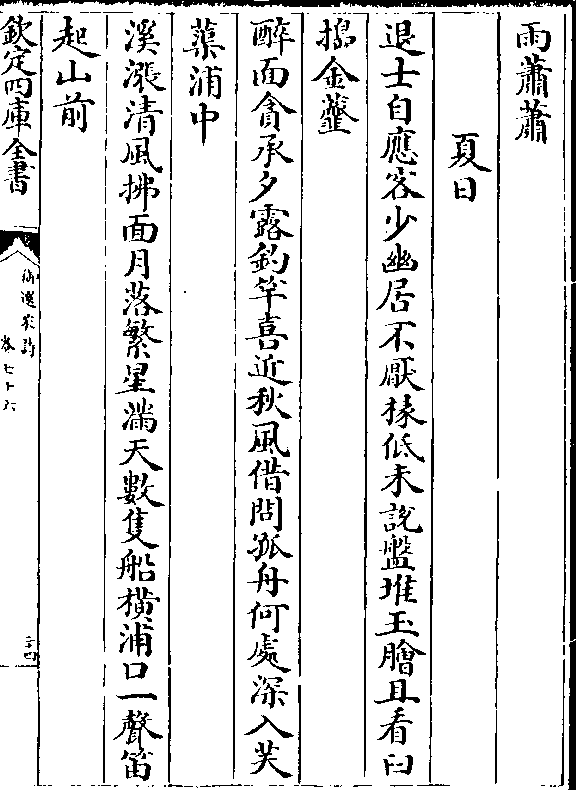 雨蕭蕭
夏日
退士自應客少幽居不厭椽低未說盤堆玉膾且看臼
搗金虀
醉面貪承夕露釣竿喜近秋風借問孤舟何處深入芙
蕖浦中
溪漲清風拂面月落繁星滿天數隻船橫浦口一聲笛
起山前
欽定四庫全書
御選宋詩
卷七十六
三十四